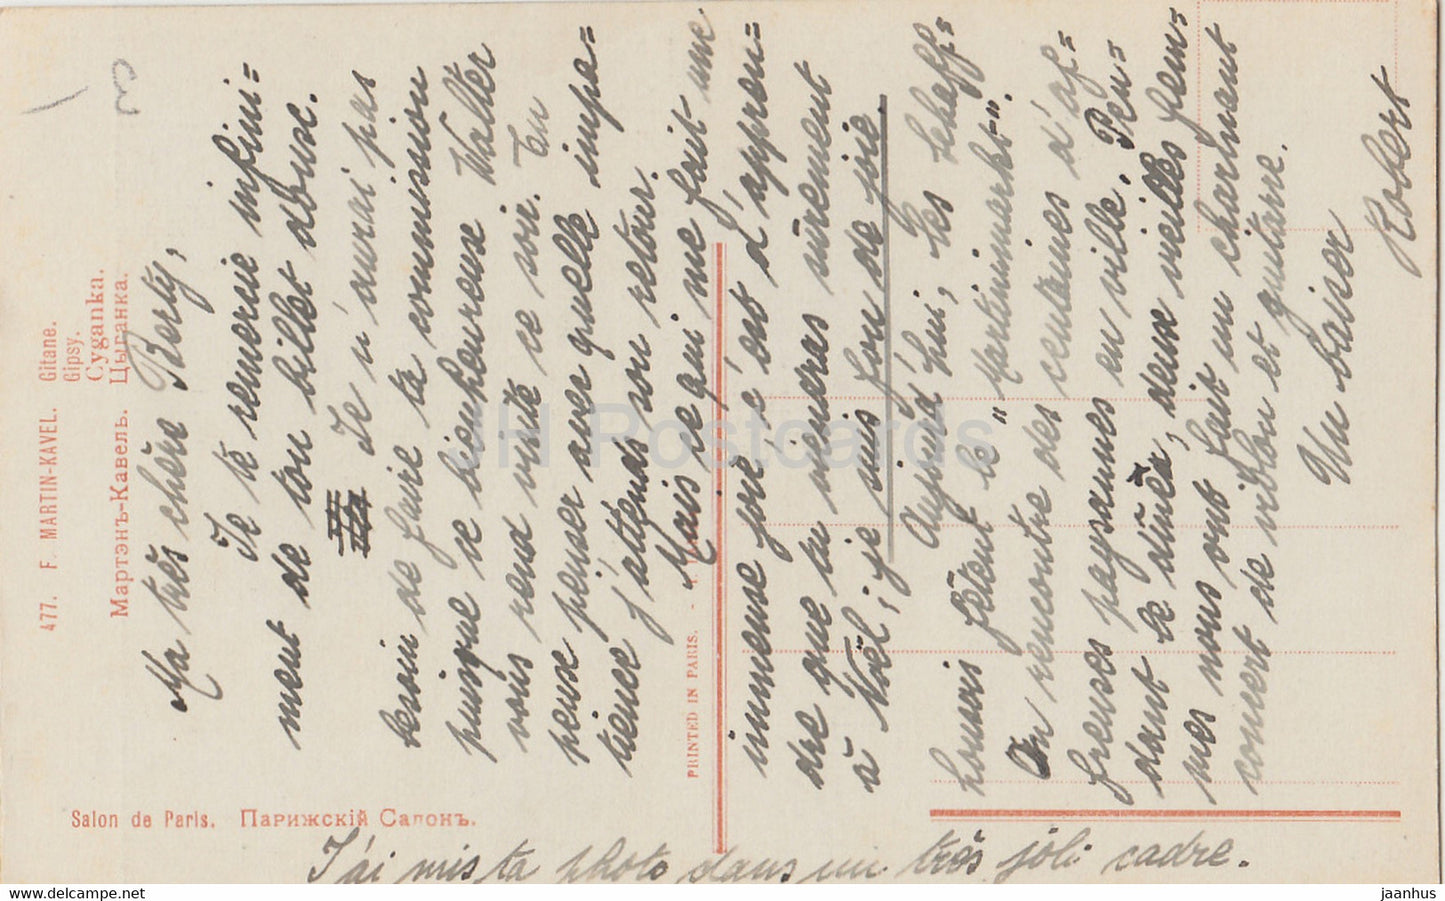 477. F. MARTIN-KAVEL. Gitane.
Gipsy.
Cyganka.
Мартэнъ-Кавель. Цыганка.
Ma très chère Berty,
Je te remercie infini=
ment de ton billet abusc.
Je n'aurai pas
besoin de faire ta commission
puisque le bienheureux Walter
vous rend visite ce soir. Tu
peux penser avec quelle impa=
tience j'attends son retour.
Mais ce qui me fait une
immense joie c'est d'appren=
dre que tu viendras sûrement
à Noël; je suis fou de joie.
Aujourd'hui, les Schaff=
housois fêtent le "Martinimarkt".
On rencontre des centaines d'af=
freuses paysannes en ville. Pen=
dant le dîner, deux vieilles fem=
mes nous ont fait un charmant
concert de violon et guitare.
Un baiser
Robert
PRINTED IN PARIS.
Salon de Paris. Парижскій Салонъ.
J'ai mis ta photo dans un très joli cadre.
JH Postcards
jaanhus